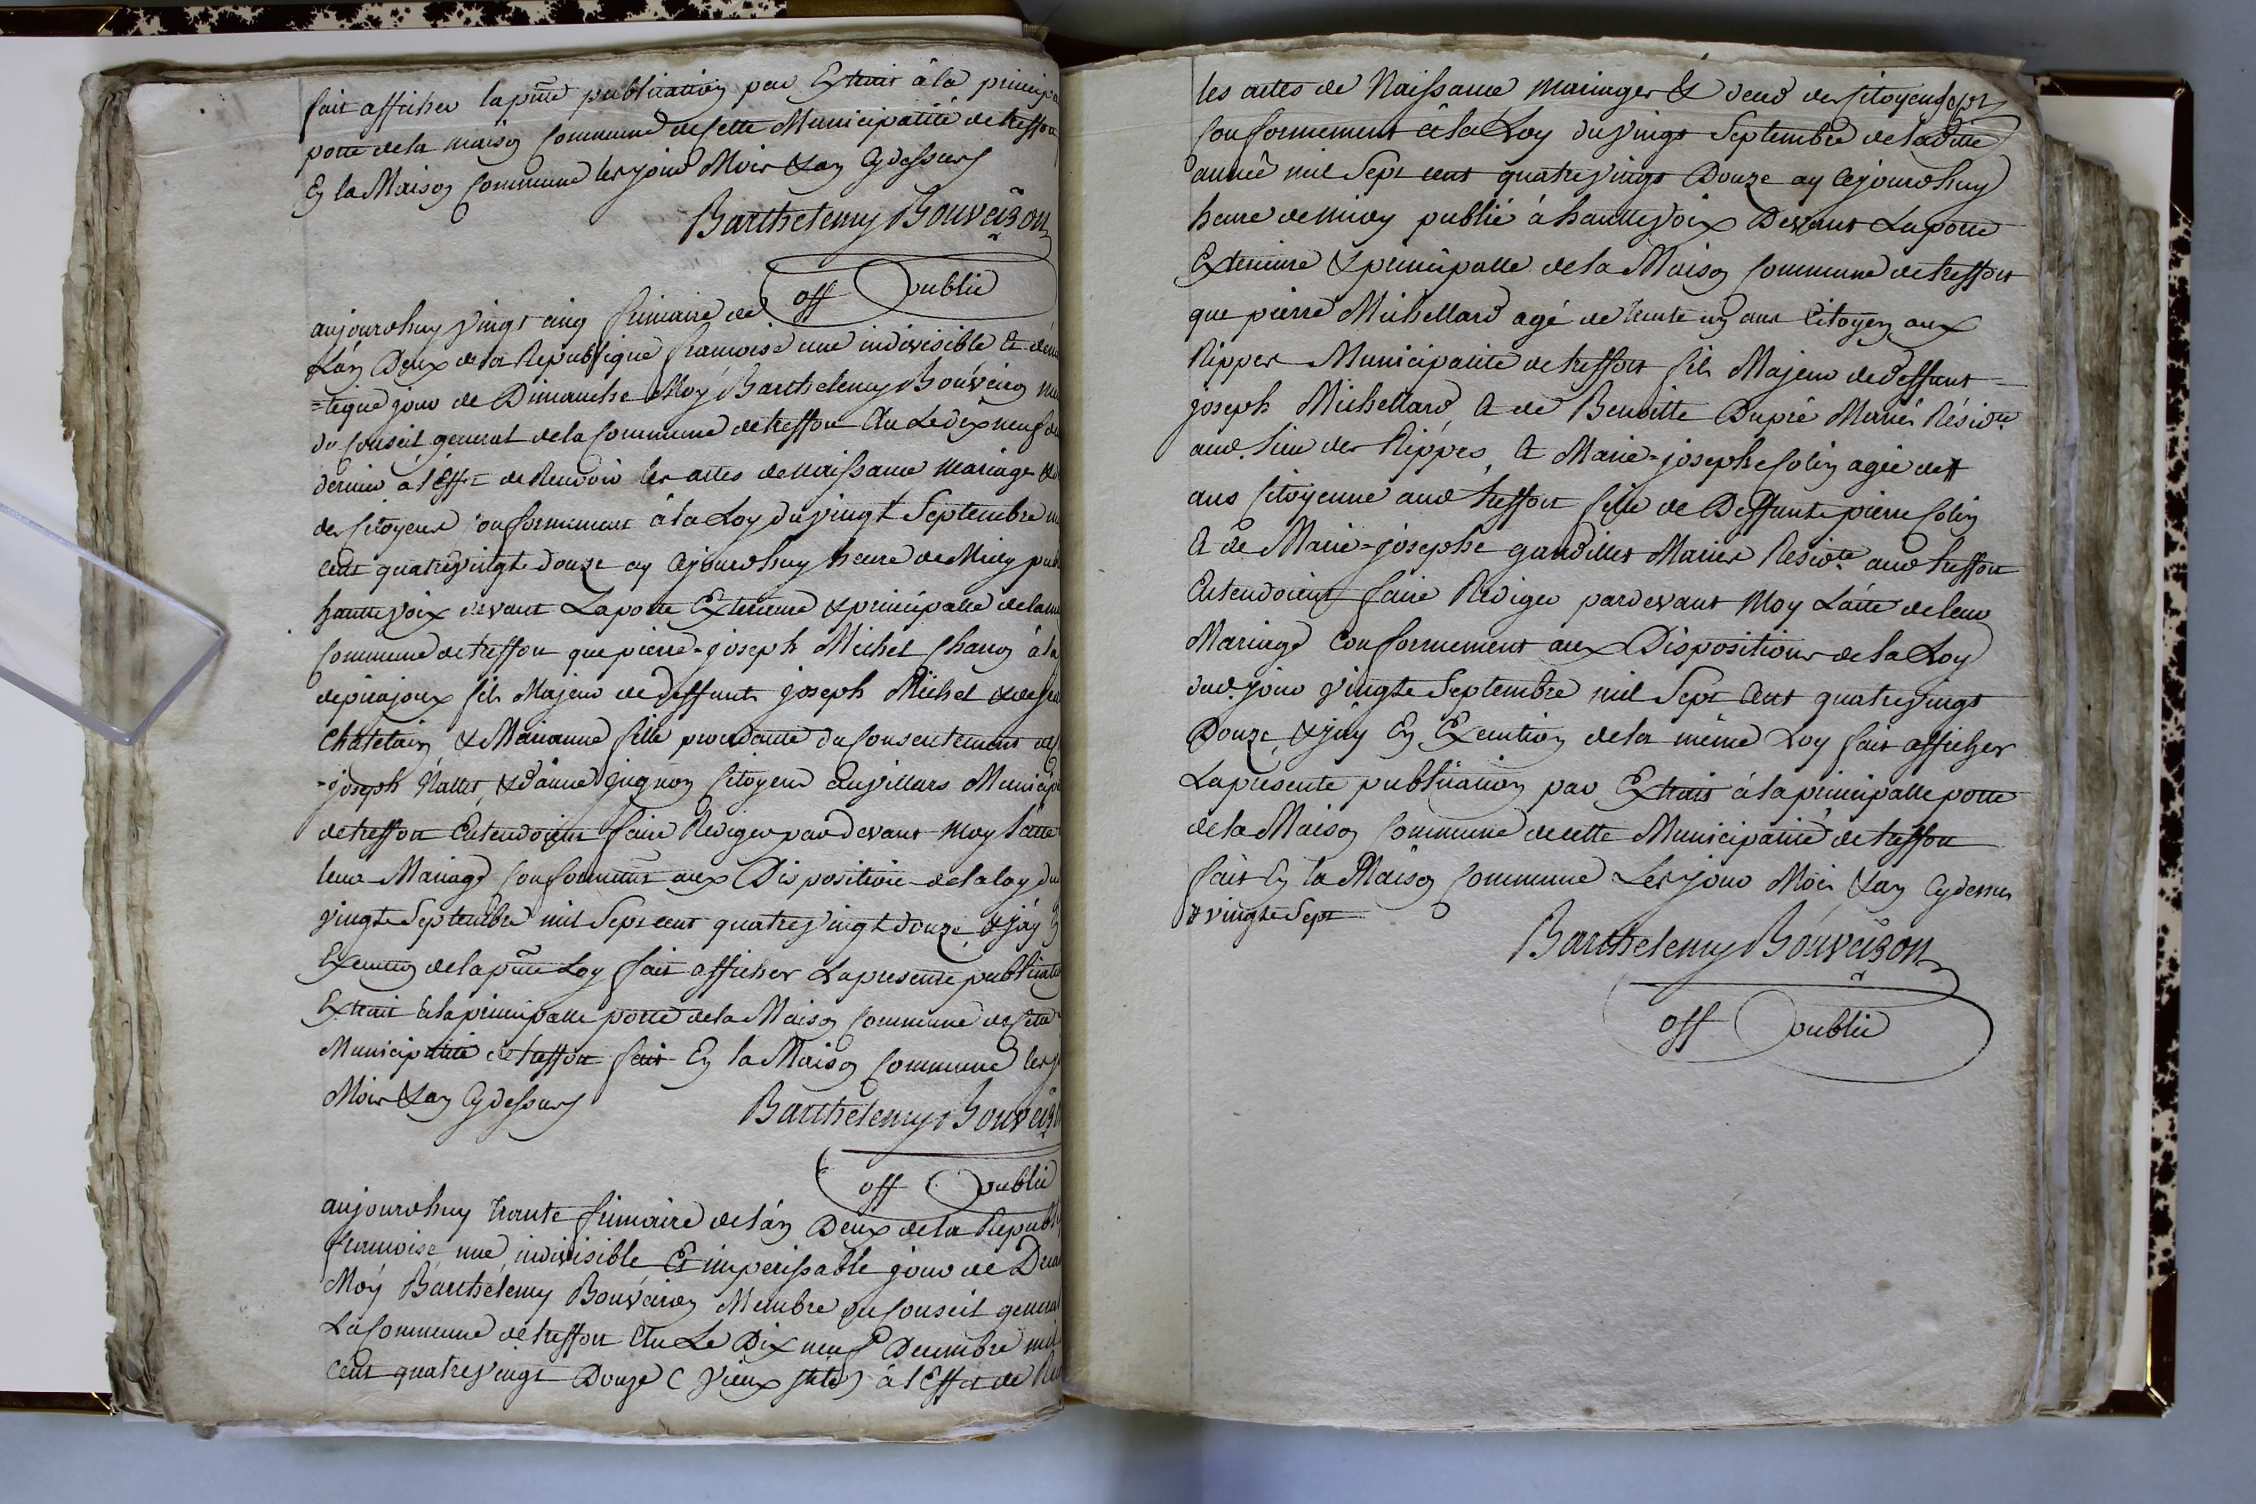 fait afficher la pnte publication par Extrait à la princip
porte de la maison Commune de Cette Municipalité de treffort
En la Maison Commune les jour Mois & an Cydessus
Barthelemy Bouveiron
off public
aujourdhuy vingt cinq frimaire de
L'an Deux de la Republique francoise une indivisible &
jour de Dimanche Moy Barthelemy Bouveiron
du Conseil general de la Commune de treffort Elu Le dix neuf
dernier à l'Eff. de Recevoir les actes de naissance mariage &
des Citoyens conformement à la Loy du vingt Septembre
cent quatrevingt douze ay Cejourdhuy heure de Midy pub
hautte voix devant La porte Exterieure & principalle de la
Commune de treffort que pierre-joseph Michel Charon à la
de pirajoux fils Majeur de deffunt joseph Michel &
Chatelain & Marianne fille procedante du Consentement de
-joseph Nallet & d'anne Citoyens Cuvillars Municip
de treffort Entendoient faire Rediger par devant Moy l'acte
leur Mariage Conformemt aux Disposition de la loy du
vingt Septembre mil Sept cent quatrevingt douze, & j'ay En
Execution de la pnte Loy fait afficher La presente publicatio
Extrait à la principalle porte de la Maison Commune de Cette
Municipalité de treffort fait En la Maison Commune les j
Mois & an Cydessus
Barthelemy Bouveiro
off public
aujourdhuy trante frimaire de l'an Deux de la Republi
francoise une indivisible Et imperissable jour de Deca
Moy Barthélemy Bouveiron Membre du Conseil general
La Commune de treffort Elu Le Dix neuf Decembre mil
cent quatrevingt Douze (vieux stile) à l'Effet de Re
les actes de Naissance Mariages & deces des Citoyens
Conformement à la Loy du vingt Septembre de laditte
année mil Sept cent quatrevingt Douze ay Cejourdhuy
heure de midy publié à hautte voix Devant La porte
Exterieure & principalle de la Maison Commune de treffort
que pierre Michellard agé de trente un ans Citoyen aux
Ripper Municipalité de treffort fils Majeur de deffunt
joseph Michellard & de Benoitte Dupré Mariés Résidte
aud. lieu des Rippes, & Marie-josephe Colin agée de #
ans Citoyenne aud treffort fille de Deffunt pierre Colin
& de Marie-josephe gaudillet Mariés Residte aud treffort
Entendoient faire Rediger pardevant Moy L'acte de leur
Mariage Conformement aux Dispositions de la Loy
dud jour vingt Septembre mil Sept Cent quatrevingt
Douze, & j'ay En Execution de la même Loy fait afficher
La présente publication par Extrait à la principalle porte
de la Maison Commune de cette Municipalité de treffort
fait En la Maison Commune Les jour Mois & an Cydessus
# vingt Sept
Barthelemy Bouveiron
off public